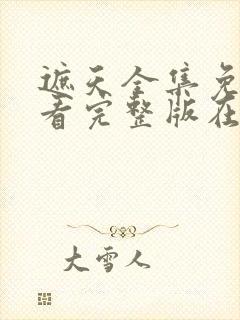 遮天全集免
看完整版在
大雪人